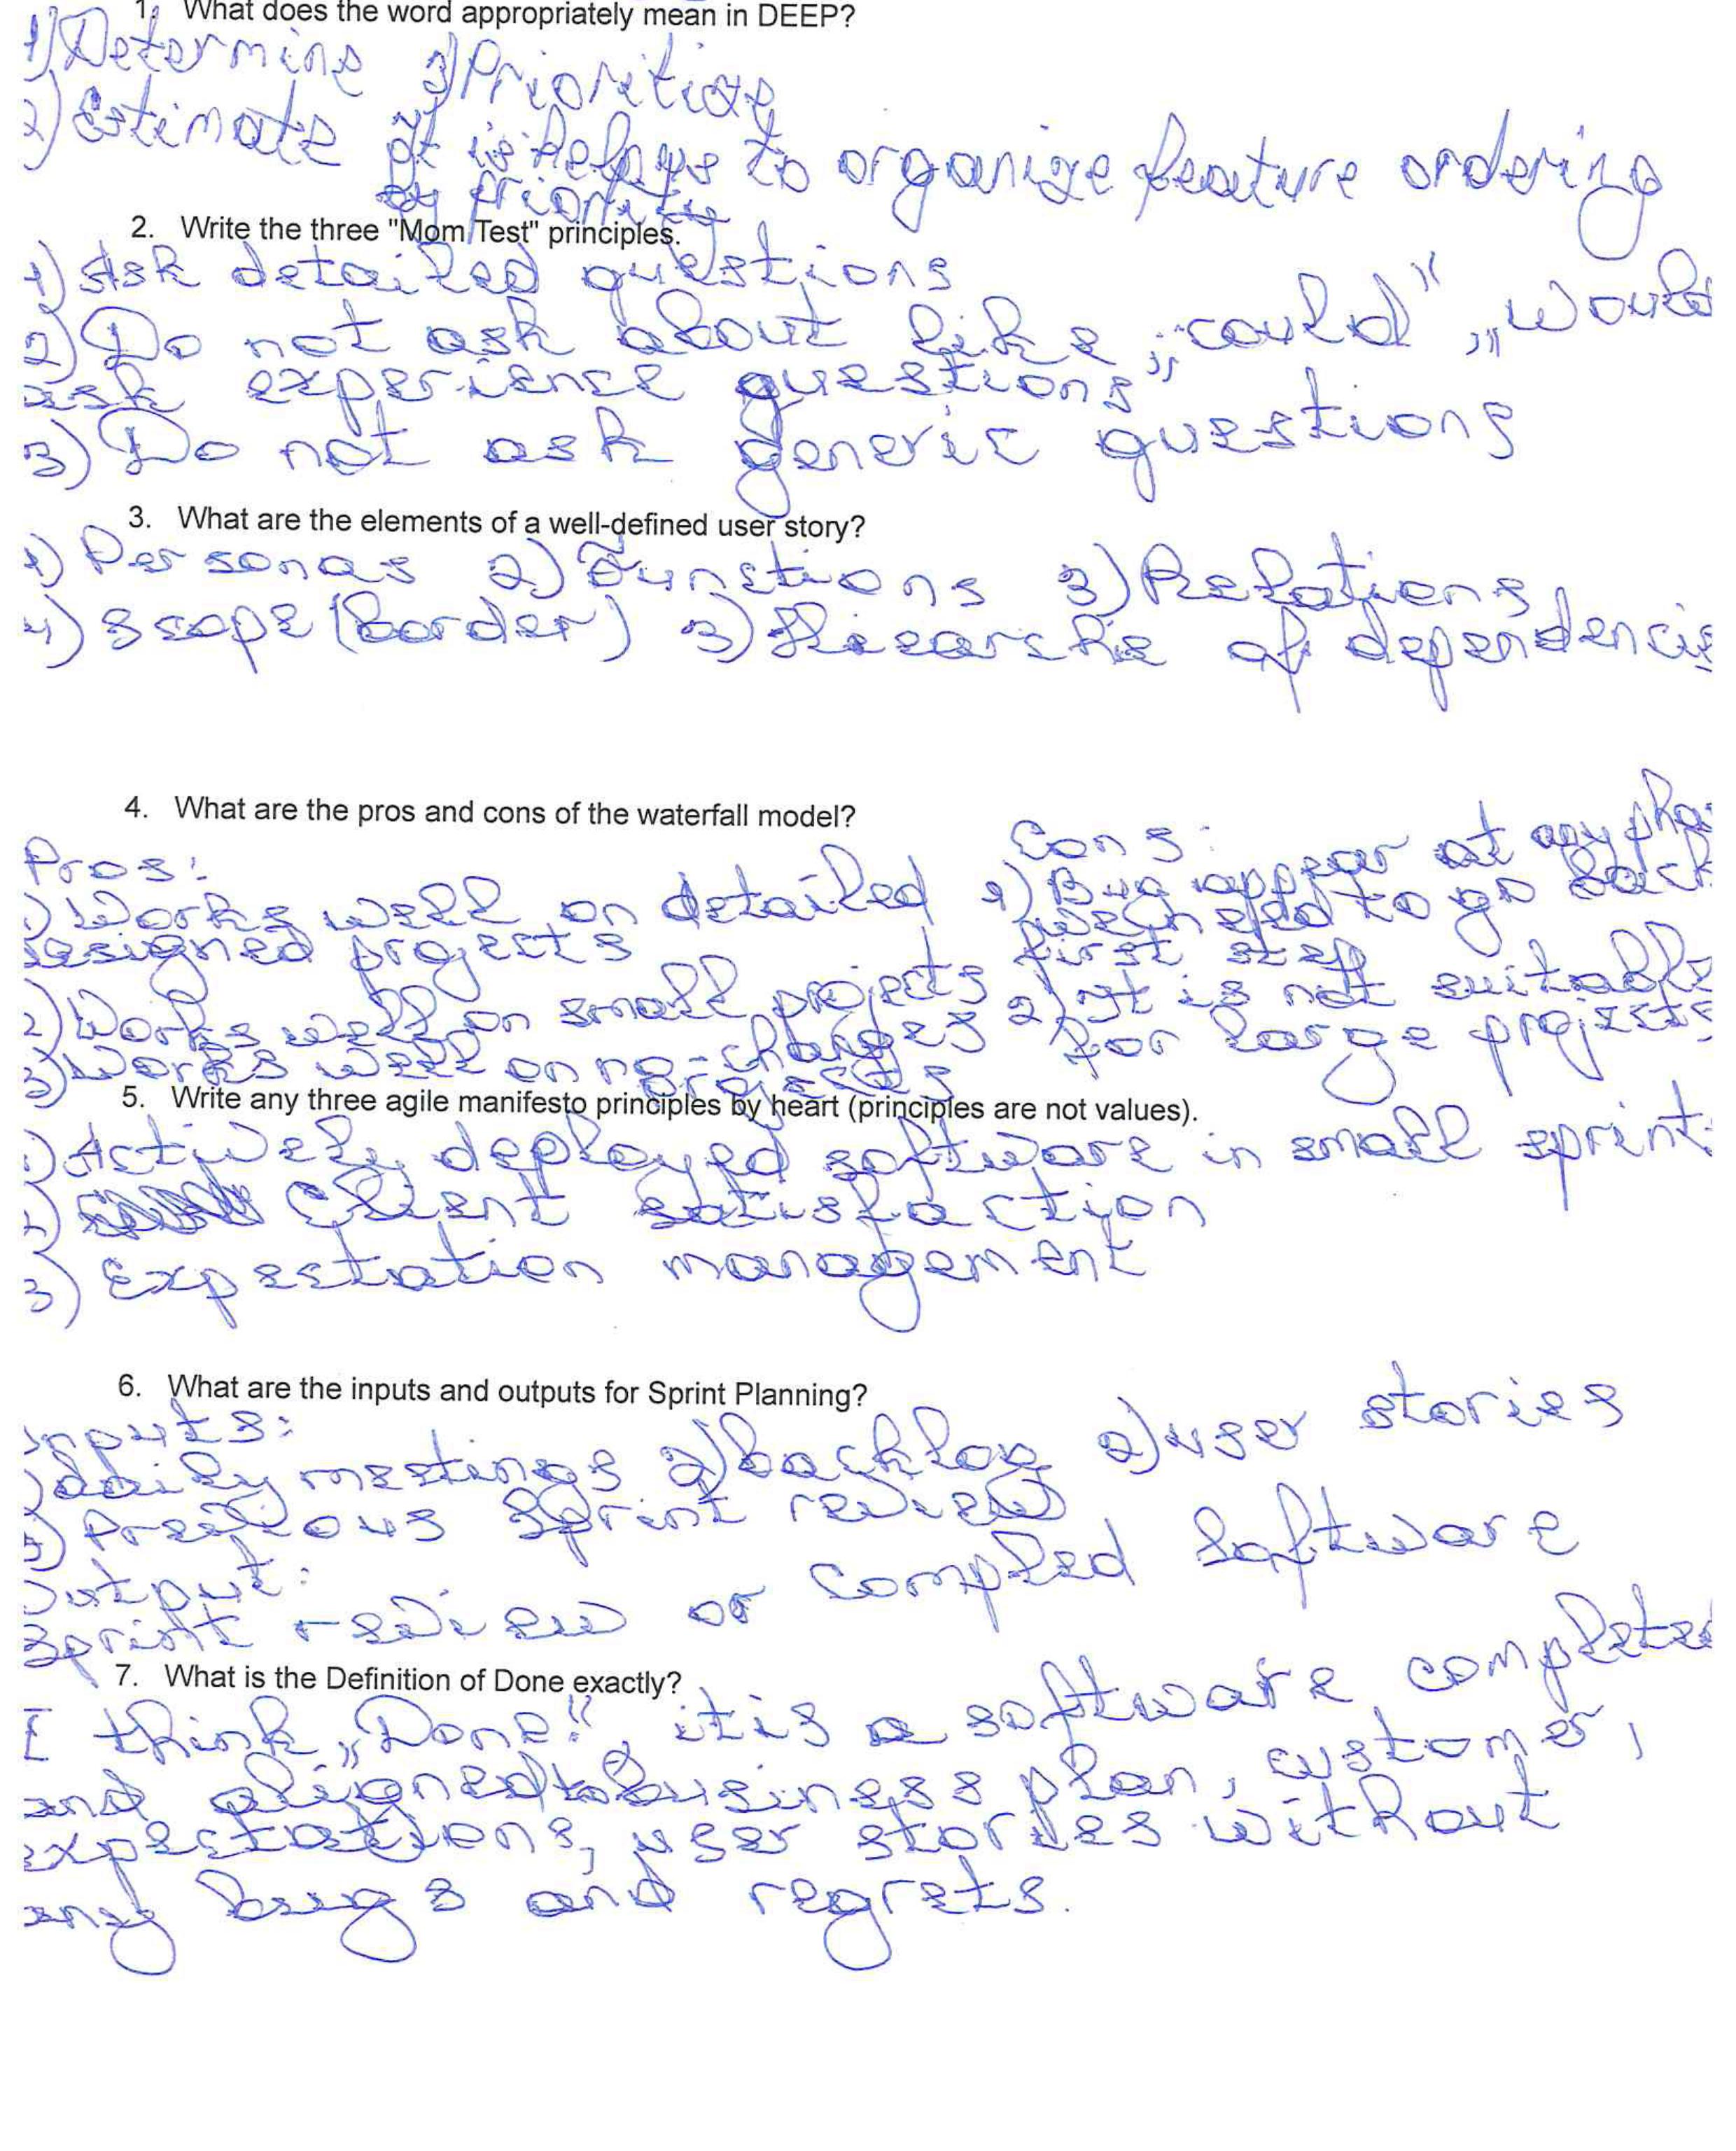 1. What does the word appropriately mean in DEEP?
1) Determine 3) Prioritize
2) Estimate It is helps us to organize feature ordering
by priority
2. Write the three "Mom Test" principles.
1) Ask detailed questions
2) Do not ask about like „could", „would
ask experience questions"
3) Do not ask generic questions
3. What are the elements of a well-defined user story?
1) Personas 2) Functions 3) Relations
4) Scope (border) 3) Hierarchie of dependencis
4. What are the pros and cons of the waterfall model?
Pros: Cons:
1) Works well on detailed 1) Bug appear at any phas
designed projects we need to go back
first step
2) Works well on small projects 2) It is not suitable
3) Works well on no-changes for large projects
projects
5. Write any three agile manifesto principles by heart (principles are not values).
1) Actively deployed software in small sprint
2) Client satisfaction
3) Expectation management
6. What are the inputs and outputs for Sprint Planning?
Inputs:
1) daily meetings 2) backlog 2) user stories
3) Previous Sprint review
Output:
Sprint review or compled Software
7. What is the Definition of Done exactly?
I think „Done" it is a software completed
and aligned to business plan, customer,
expectations, user stories without
any bugs and regrets.